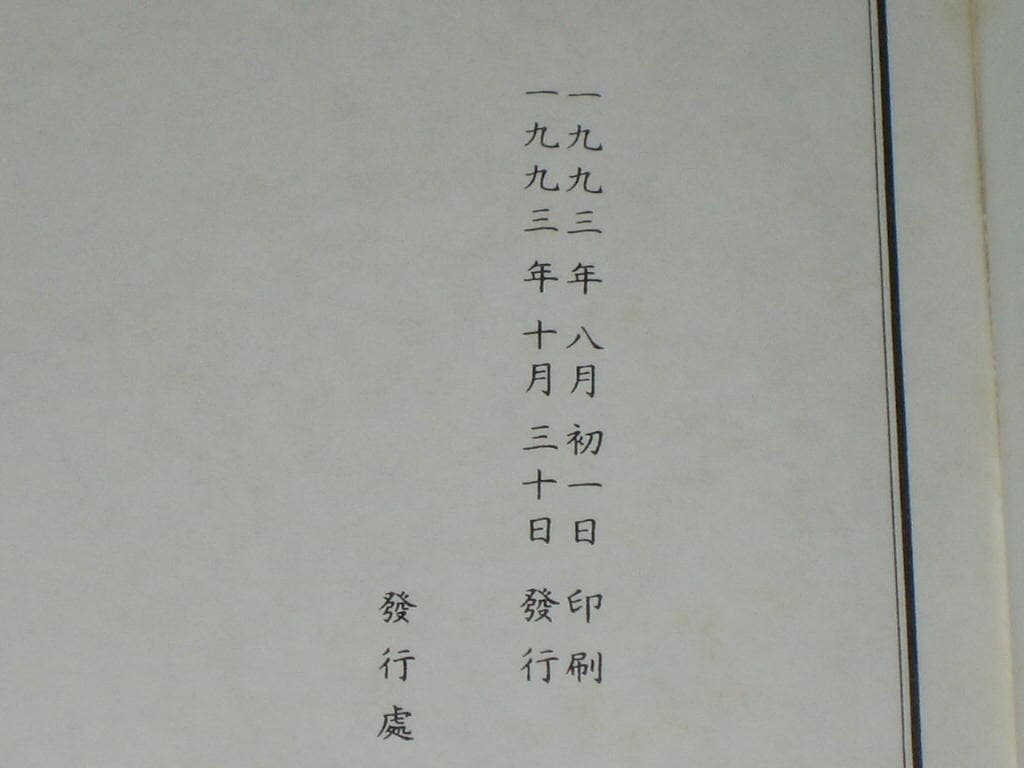 一九九三年八月初一日印刷
一九九三年十月三十日發行
發行處